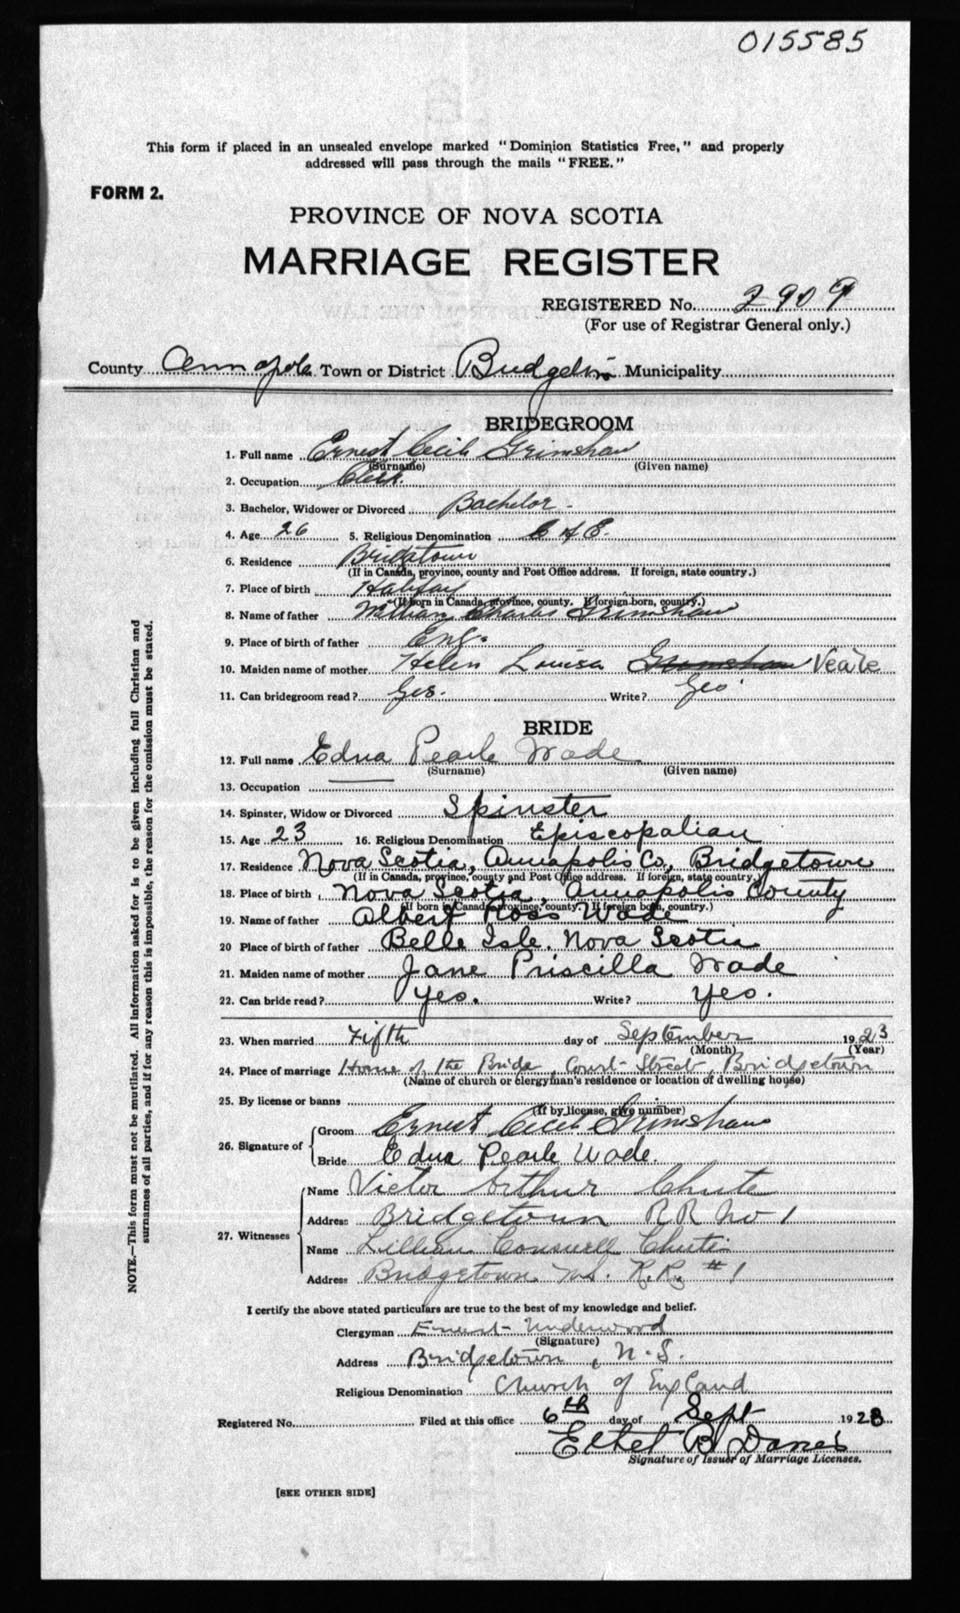 015585
This form if placed in an unsealed envelope marked "Dominion Statistics Free," and properly
addressed will pass through the mails "FREE."
FORM 2.
PROVINCE OF NOVA SCOTIA
MARRIAGE REGISTER
REGISTERED No. 2909
(For use of Registrar General only.)
County Annapolis Town or District Bridgetown Municipality
BRIDEGROOM
1. Full name Ernest Cecil Grimshaw
(Surname) (Given name)
2. Occupation Clerk.
3. Bachelor, Widower or Divorced Bachelor -
4. Age 26 5. Religious Denomination C of E.
6. Residence Bridgetown
(If in Canada, province, county and Post Office address. If foreign, state country.)
7. Place of birth Halifax
(If born in Canada, province, county. If foreign born, country.)
8. Name of father William Charles Grimshaw
9. Place of birth of father Eng.
10. Maiden name of mother Helen Louisa Grimshaw Veale
11. Can bridegroom read? Yes. Write? Yes
BRIDE
12. Full name Edna Pearle Wade
(Surname) (Given name)
13. Occupation
14. Spinster, Widow or Divorced Spinster
15. Age 23 16. Religious Denomination Episcopalian
17. Residence Nova Scotia, Annapolis Co, Bridgetown
(If in Canada, province, county and Post Office address. If foreign, state country.)
18. Place of birth Nova Scotia, Annapolis County
(If born in Canada, province, county. If foreign born, country.)
19. Name of father Albert Ross Wade
20 Place of birth of father Belle Isle, Nova Scotia
21. Maiden name of mother Jane Priscilla Wade
22. Can bride read? Yes. Write? Yes.
23. When married Fifth day of September 1923
(Month) (Year)
24. Place of marriage Home of the Bride, Court Street, Bridgetown
(Name of church or clergyman's residence or location of dwelling house)
25. By license or banns
(If by license, give number)
26. Signature of Groom Ernest Cecil Grimshaw
Bride Edna Pearle Wade.
27. Witnesses Name Victor Arthur Chute
Address Bridgetown RR No 1
Name Lillian Chute
Address Bridgetown N.S. R.R. #1
I certify the above stated particulars are true to the best of my knowledge and belief.
Clergyman Ernest Underwood
(Signature)
Address Bridgetown, N.S.
Religious Denomination Church of England
Registered No. Filed at this office 6th day of Sept 1923
Ethel B
Signature of Issuer of Marriage Licenses.
[SEE OTHER SIDE]
NOTE.—This form must not be mutilated. All information asked for is to be given including full Christian and
surnames of all parties, and if for any reason this is impossible, the reason for the omission must be stated.